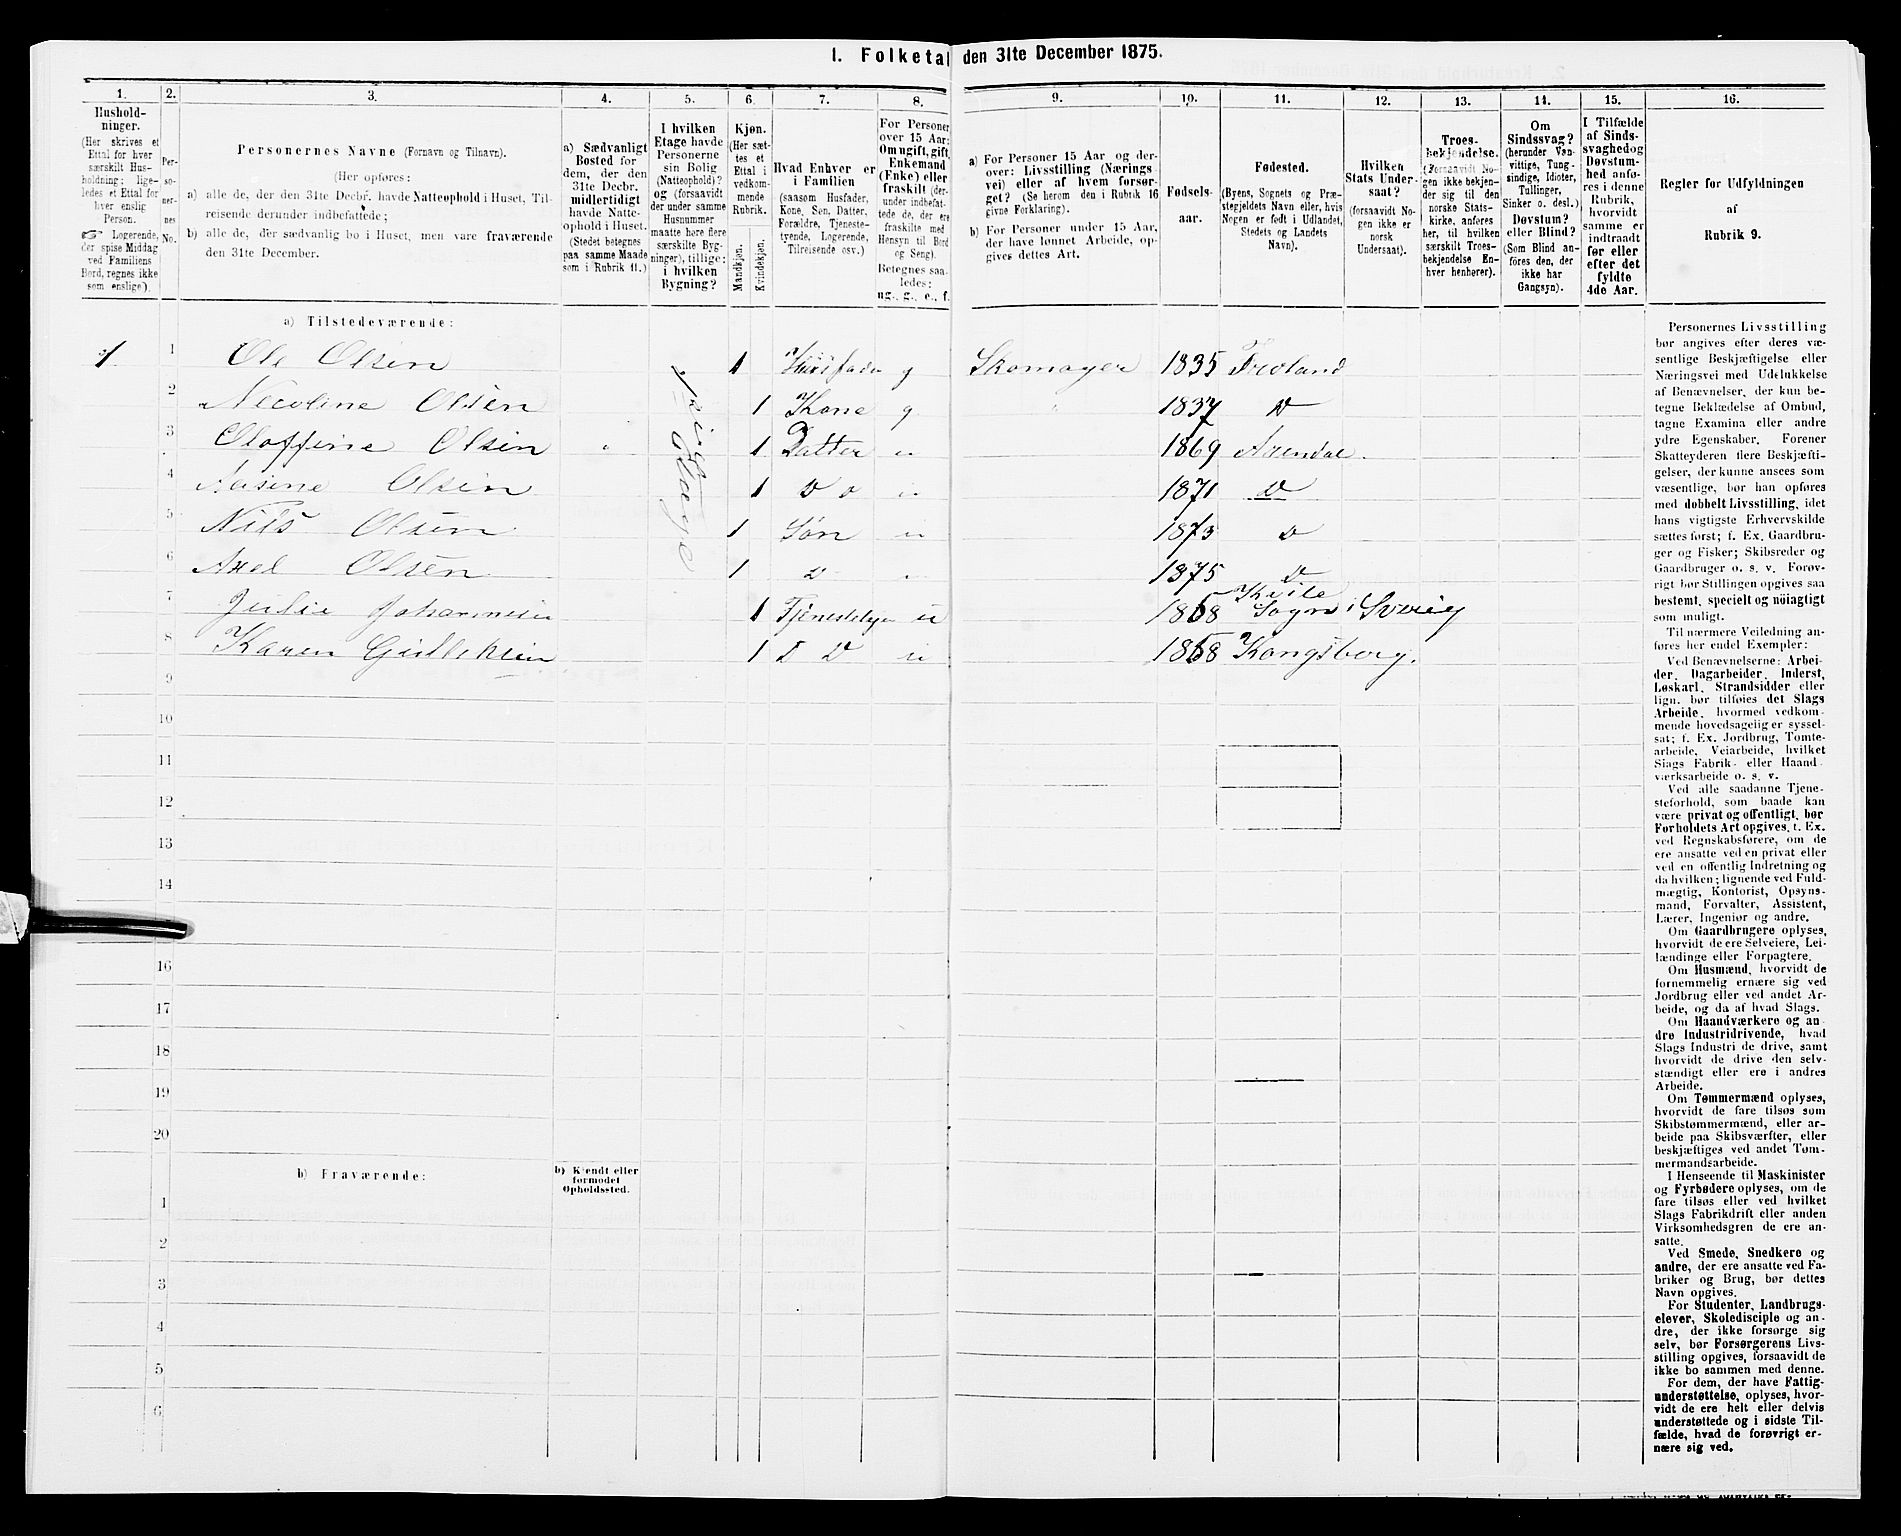 I. Folketal den 31te December 1875.
1.
Hushold-
ninger.
(Her skrives et
Ettal for hver
særskilt Hus-
holdning; lige-
ledes et Ettal for
hver enslig
Person.
☞ Logerende,
der spise Middag
ved Familiens
Bord, regnes ikke
som enslige).
2.
Per-
so-
ner-
nes
No.
3.
Personernes Navne (Fornavn og Tilnavn).
(Her opføres:
a) alle de, der den 31te Decbr. havde Natteophold i Huset, Til-
reisende derunder indbefattede;
b) alle de, der sædvanlig bo i Huset, men vare fraværende
den 31te December.
4.
a) Sædvanligt
Bosted for
dem, der den
31te Decbr.
midlertidigt
havde Natte-
ophold i Huset.
(Stedet betegnes
paa samme Maade
som i Rubrik 11.)
5.
I hvilken
Etage havde
Personerne
sin Bolig
(Natteophold)?
og (forsaavidt
der under samme
Husnummer
maatte høre flere
særskilte Byg-
ninger), tillige:
i hvilken
Bygning?
6.
Kjøn.
(Her sæt-
tes et
Ettal i
vedkom-
mende
Rubrik.
Mandkjøn.
Kvindekjøn.
7.
Hvad Enhver er
i Familien
(saasom Husfader,
Kone, Søn, Datter,
Forældre, Tjeneste-
tyende, Logerende,
Tilreisende osv.)
8.
For Personer
over 15 Aar:
Om ugift, gift,
Enkemand
(Enke) eller
fraskilt (der-
under indbefat-
tede de, der ere
fraskilte med
Hensyn til Bord
og Seng).
Betegnes saa-
ledes:
ug., g., e., f.
9.
a) For Personer 15 Aar og der-
over: Livsstilling (Nærings-
vei) eller af hvem forsør-
get? (Se herom den i Rubrik 16
givne Forklaring).
b) For Personer under 15 Aar,
der have lønnet Arbeide, op-
gives dettes Art.
10.
Fødsels-
aar.
11.
Fødested.
(Byens, Sognets og Præ-
stegjeldets Navn eller, hvis
Nogen er født i Udlandet,
Stedets og Landets
Navn).
12.
Hvilken
Stats Under-
saat?
(forsaavidt No-
gen ikke er
norsk
Undersaat).
13.
Troes-
bekjendelse.
(Forsaavidt No-
gen ikke bekjen-
der sig til den
norske Stats-
kirke, anføres
her, til hvilken
særskilt Troes-
bekjendelse En-
hver henhører).
14.
Om
Sindssvag?
(herunder Van-
vittige, Tung-
sindige, Idioter,
Tullinger,
Sinker o. desl.)
Døvstum?
eller Blind?
(Som Blind an-
føres den, der
ikke har
Gangsyn).
15.
I Tilfælde
af Sinds-
svaghed og
Døvstum-
hed anfø-
res i denne
Rubrik,
hvorvidt
samme er
indtraadt
før eller
efter det
fyldte
4de Aar.
16.
Regler for Udfyldningen
af
Rubrik 9.
a) Tilstedeværende:
1 1 Ole Olsen 1 Husfader g Skomager 1835 Froland
2 Nicoline Olsen 1 Kone g " 1837 D
3 Oloffine Olsen " 1 Datter u 1869 Arendal
4 Aasine Olsen 1 D o u 1871 D
5 Nils Olsen 1 Søn u 1873 D
6 Axel Olsen 1 D u 1875 D
Kville
7 Julie Johannesen 1 Tjenestepige u 1858 Sogn i Sverig
8 Karen Gulleksen 1 D D u 1858 Kongsberg.
1ste Etage
9
10
11
12
13
14
15
16
17
18
19
20
b) Fraværende:
b) Kjendt eller
formodet
Opholdssted.
1
2
3
4
5
6
Personernes Livsstilling
bør angives efter deres væ-
sentlige Beskjæftigelse eller
Næringsvei med Udelukkelse
af Benævnelser, der kun be-
tegne Beklædelse af Ombud,
tagne Examina eller andre
ydre Egenskaber. Forener
Skatteyderen flere Beskjæfti-
gelser, der kunne ansees som
væsentlige, bør han opføres
med dobbelt Livsstilling, idet
hans vigtigste Erhvervskilde
sættes først; f. Ex. Gaardbru-
ger og Fisker; Skibsreder og
Gaardbruger o. s. v. Forøv-
rigt bør Stillingen opgives saa
bestemt, specielt og nøiagtigt
som muligt.
Til nærmere Veiledning an-
føres her endel Exempler:
Ved Benævnelserne: Arbei-
der, Dagarbeider, Inderst,
Løskarl, Strandsidder eller
lign. bør tilføies det Slags
Arbeide, hvormed vedkom-
mende hovedsagelig er syssel-
sat; f. Ex. Jordbrug, Tomte-
arbeide, Veiarbeide, hvilket
Slags Fabrik- eller Haand-
værksarbeide o. s. v.
Ved alle saadanne Tjene-
steforhold, som baade kan
være privat og offentligt, bør
Forholdets Art opgives, t. Ex.
ved Regnskabsførere, om de
ere ansatte ved en privat eller
ved en offentlig Indretning og
da hvilken; lignende ved Fuld-
mægtig, Kontorist, Opsyns-
mand, Forvalter, Assistent,
Lærer, Ingeniør og andre.
Om Gaardbrugere oplyses,
hvorvidt de ere Selveiere, Lei-
lændinge eller Forpagtere.
Om Husmænd, hvorvidt de
fornemmelig ernære sig ved
Jordbrug eller ved andet Ar-
beide, og da af hvad Slags.
Om Haandværkere og an-
dre Industridrivende, hvad
Slags Industri de drive, samt
hvorvidt de drive den selv-
stændigt eller ere i andres
Arbeide.
Om Tømmermænd oplyses,
hvorvidt de fare tilsøs som
Skibstømmermænd, eller ar-
beide paa Skibsværfter, eller
beskjæftiges ved andet Tøm-
mermandsarbeide.
I Henseende til Maskinister
og Fyrbødere oplyses, om de
fare tilsøs eller ved hvilket
Slags Fabrikdrift eller anden
Virksomhedsgren de ere an-
satte.
Ved Smede, Snedkere og
andre, der ere ansatte ved Fa-
briker og Brug, bør dettes
Navn opgives.
For Studenter, Landbrugs-
elever, Skoledisciple og an-
dre, der ikke forsørge sig
selv, bør Forsørgerens Livs-
stilling opgives, forsaavidt de
ikke bo sammen med denne.
For dem, der have Fattig-
understøttelse, oplyses, hvor-
vidt de ere helt eller delvis
understøttede og i sidste Til-
fælde, hvad de forøvrigt er-
nære sig ved.